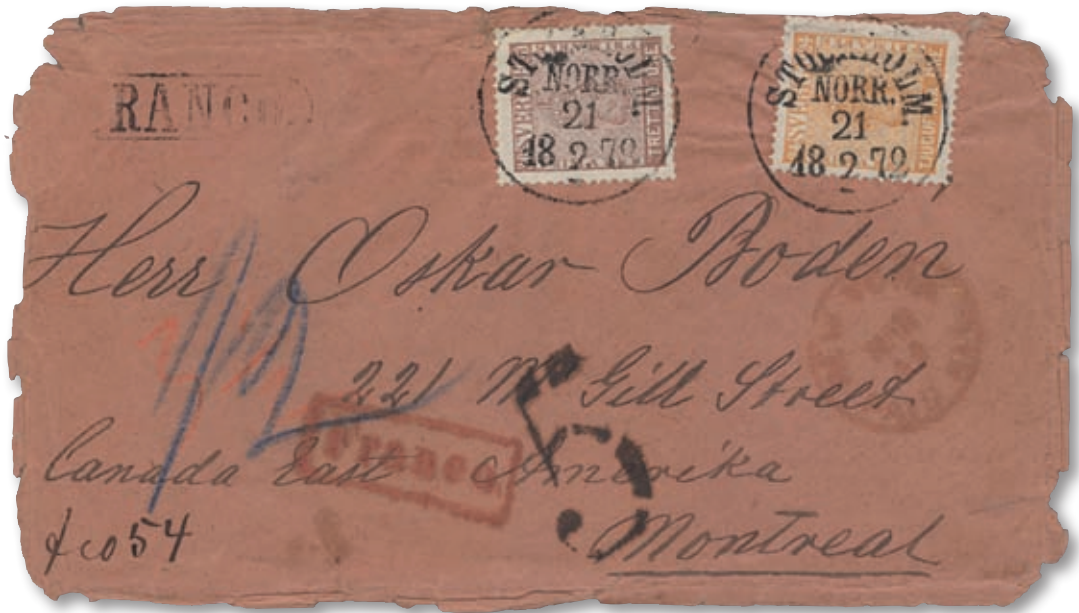 STOCKHOLM
NORR.
21
18 2 72
STOCKHOLM.
NORR.
21
18 2 72
Herr Oskar Boden
221 Mc Gill Street
Franco
5
Canada East Amerika
fco 54
Montreal